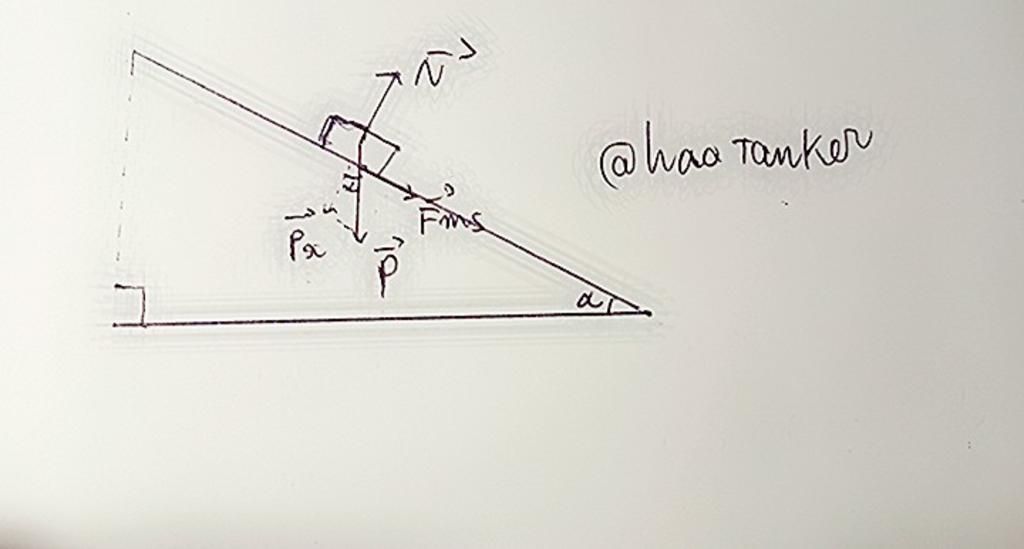 N
@haatanker
Fms
Px
P
α